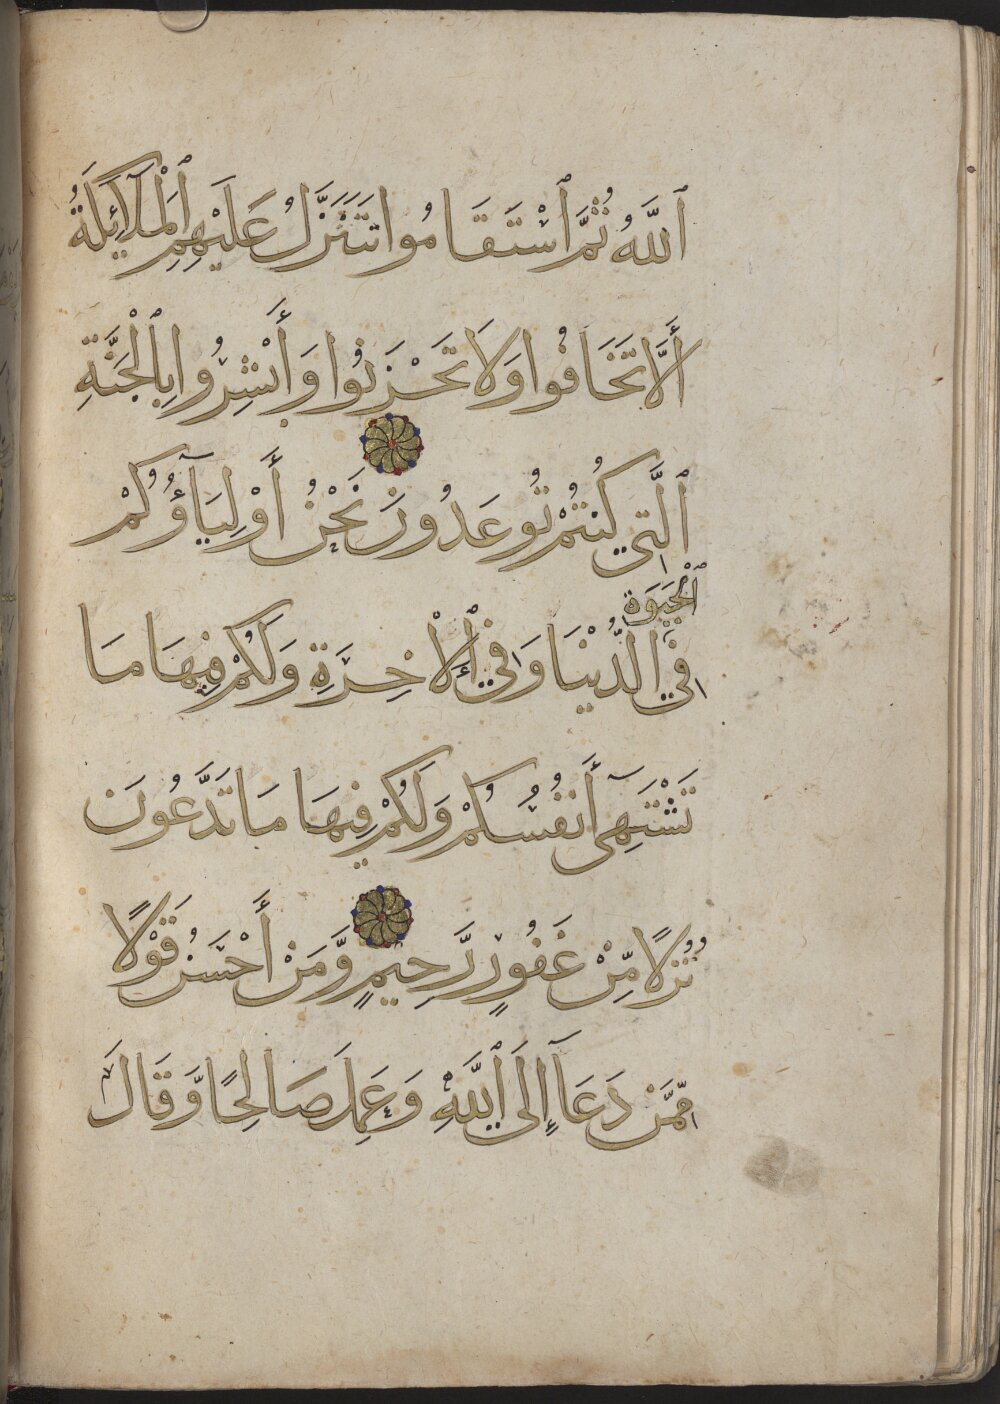 ٱللَّهُ ثُمَّ ٱسْتَقَامُوا تَتَنَزَّلُ عَلَيْهِمِ ٱلْمَلَآئِكَةُ
أَلَّا تَخَافُوا وَلَا تَحْزَنُوا وَأَبْشِرُوا بِٱلْجَنَّةِ
ٱلَّتِي كُنتُمْ تُوعَدُونَ نَحْنُ أَوْلِيَآؤُكُمْ
ٱلْحَيَوٰةِ
فِي الدُّنْيَا وَفِي ٱلْأَخِرَةِ وَلَكُمْ فِيهَا مَا
تَشْتَهِىٓ أَنفُسُكُمْ وَلَكُمْ فِيهَا مَا تَدَّعُونَ
نُزُلًا مِّنْ غَفُورٍ رَّحِيمٍ وَّمَنْ أَحْسَنُ قَوْلًا
مِّمَّن دَعَآ إِلَى ٱللَّهِ وَعَمِلَ صَالِحًا وَّقَالَ